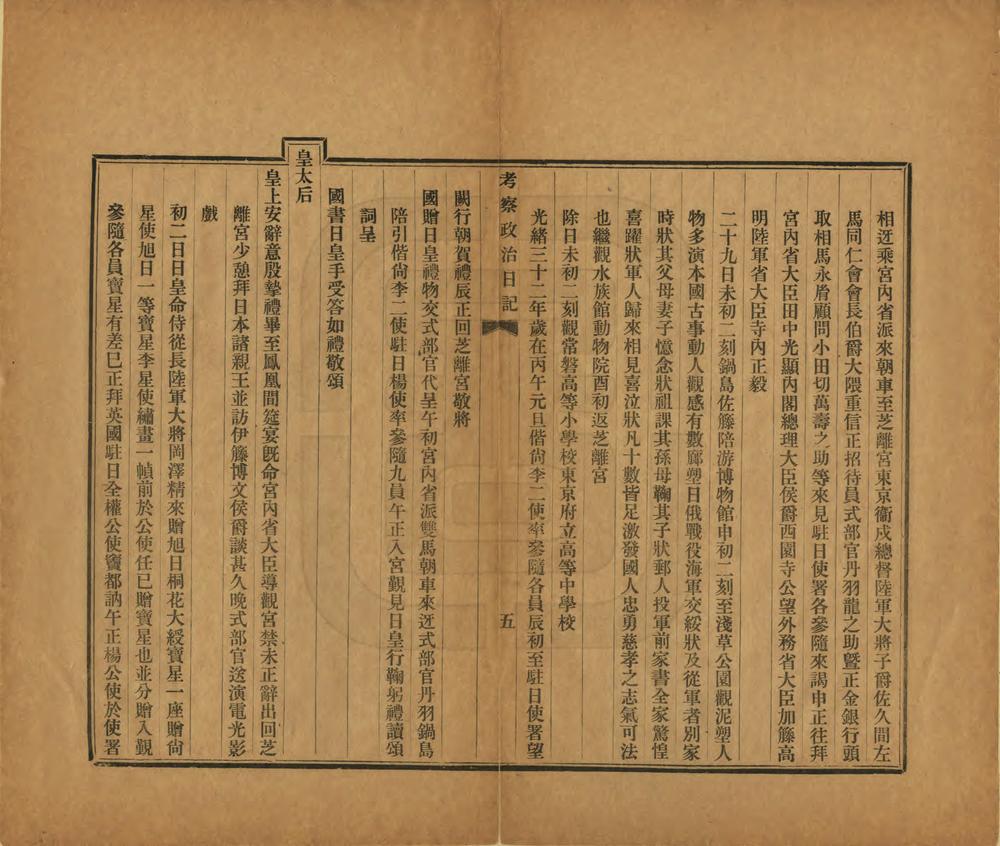 相迓乘宮內省派來朝車至芝離宮東京衞戍總督陸軍大將子爵佐久間左
馬同仁會會長伯爵大隈重信正招待員式部官丹羽龍之助暨正金銀行頭
取相馬永胤顧問小田切萬壽之助等來見駐日使署各參隨來謁申正往拜
宮內省大臣田中光顯內閣總理大臣侯爵西園寺公望外務省大臣加籐高
明陸軍省大臣寺內正毅
二十九日未初二刻鍋島佐籐陪游博物館申初二刻至淺草公園觀泥塑人
物多演本國古事動人觀感有數廊塑日俄戰役海軍交綏狀及從軍者別家
時狀其父母妻子憶念狀祖課其孫母鞠其子狀郵人投軍前家書全家驚惶
喜躍狀軍人歸來相見喜泣狀凡十數皆足激發國人忠勇慈孝之志氣可法
也繼觀水族館動物院酉初返芝離宮
除日未初二刻觀常磐高等小學校東京府立高等中學校
光緒三十二年歲在丙午元旦偕尙李二使率參隨各員辰初至駐日使署望
考察政治日記
五
闕行朝賀禮辰正回芝離宮敬將
國贈日皇禮物交式部官代呈午初宮內省派雙馬朝車來迓式部官丹羽鍋島
陪引偕尙李二使駐日楊使率參隨九員午正入宮覲見日皇行鞠躬禮讀頌
詞呈
國書日皇手受答如禮敬頌
皇太后
皇上安辭意殷摯禮畢至鳳凰間筵宴旣命宮內省大臣導觀宮禁未正辭出回芝
離宮少憩拜日本諸親王並訪伊籐博文侯爵談甚久晚式部官送演電光影
戲
初二日日皇命侍從長陸軍大將岡澤精來贈旭日桐花大綬寶星一座贈尙
星使旭日一等寶星李星使繡畫一幀前於公使任已贈寶星也並分贈入覲
參隨各員寶星有差巳正拜英國駐日全權公使竇都訥午正楊公使於使署